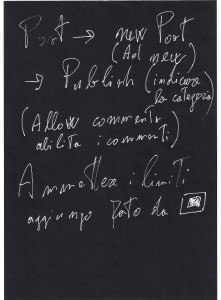 Post → new Post
(Ad new)
→ Publish (indicare
la categoria)
(Allow comments
abilita i commenti)
Ammettere i limiti
aggiungo foto da